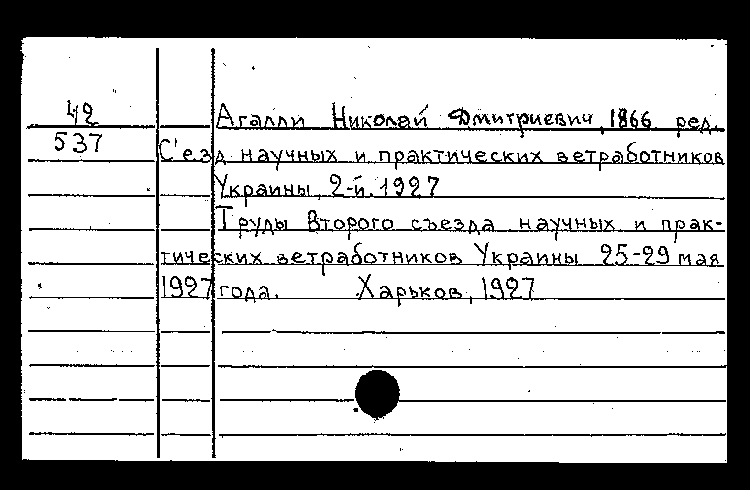 42
537
Агалли Николай Дмитриевич, 1866 ред.
С'езд научных и практических ветработников
Украины, 2-й. 1927
Труды второго съезда научных и прак-
тических ветработников Украины 25-29 мая
1927 года. Харьков, 1927